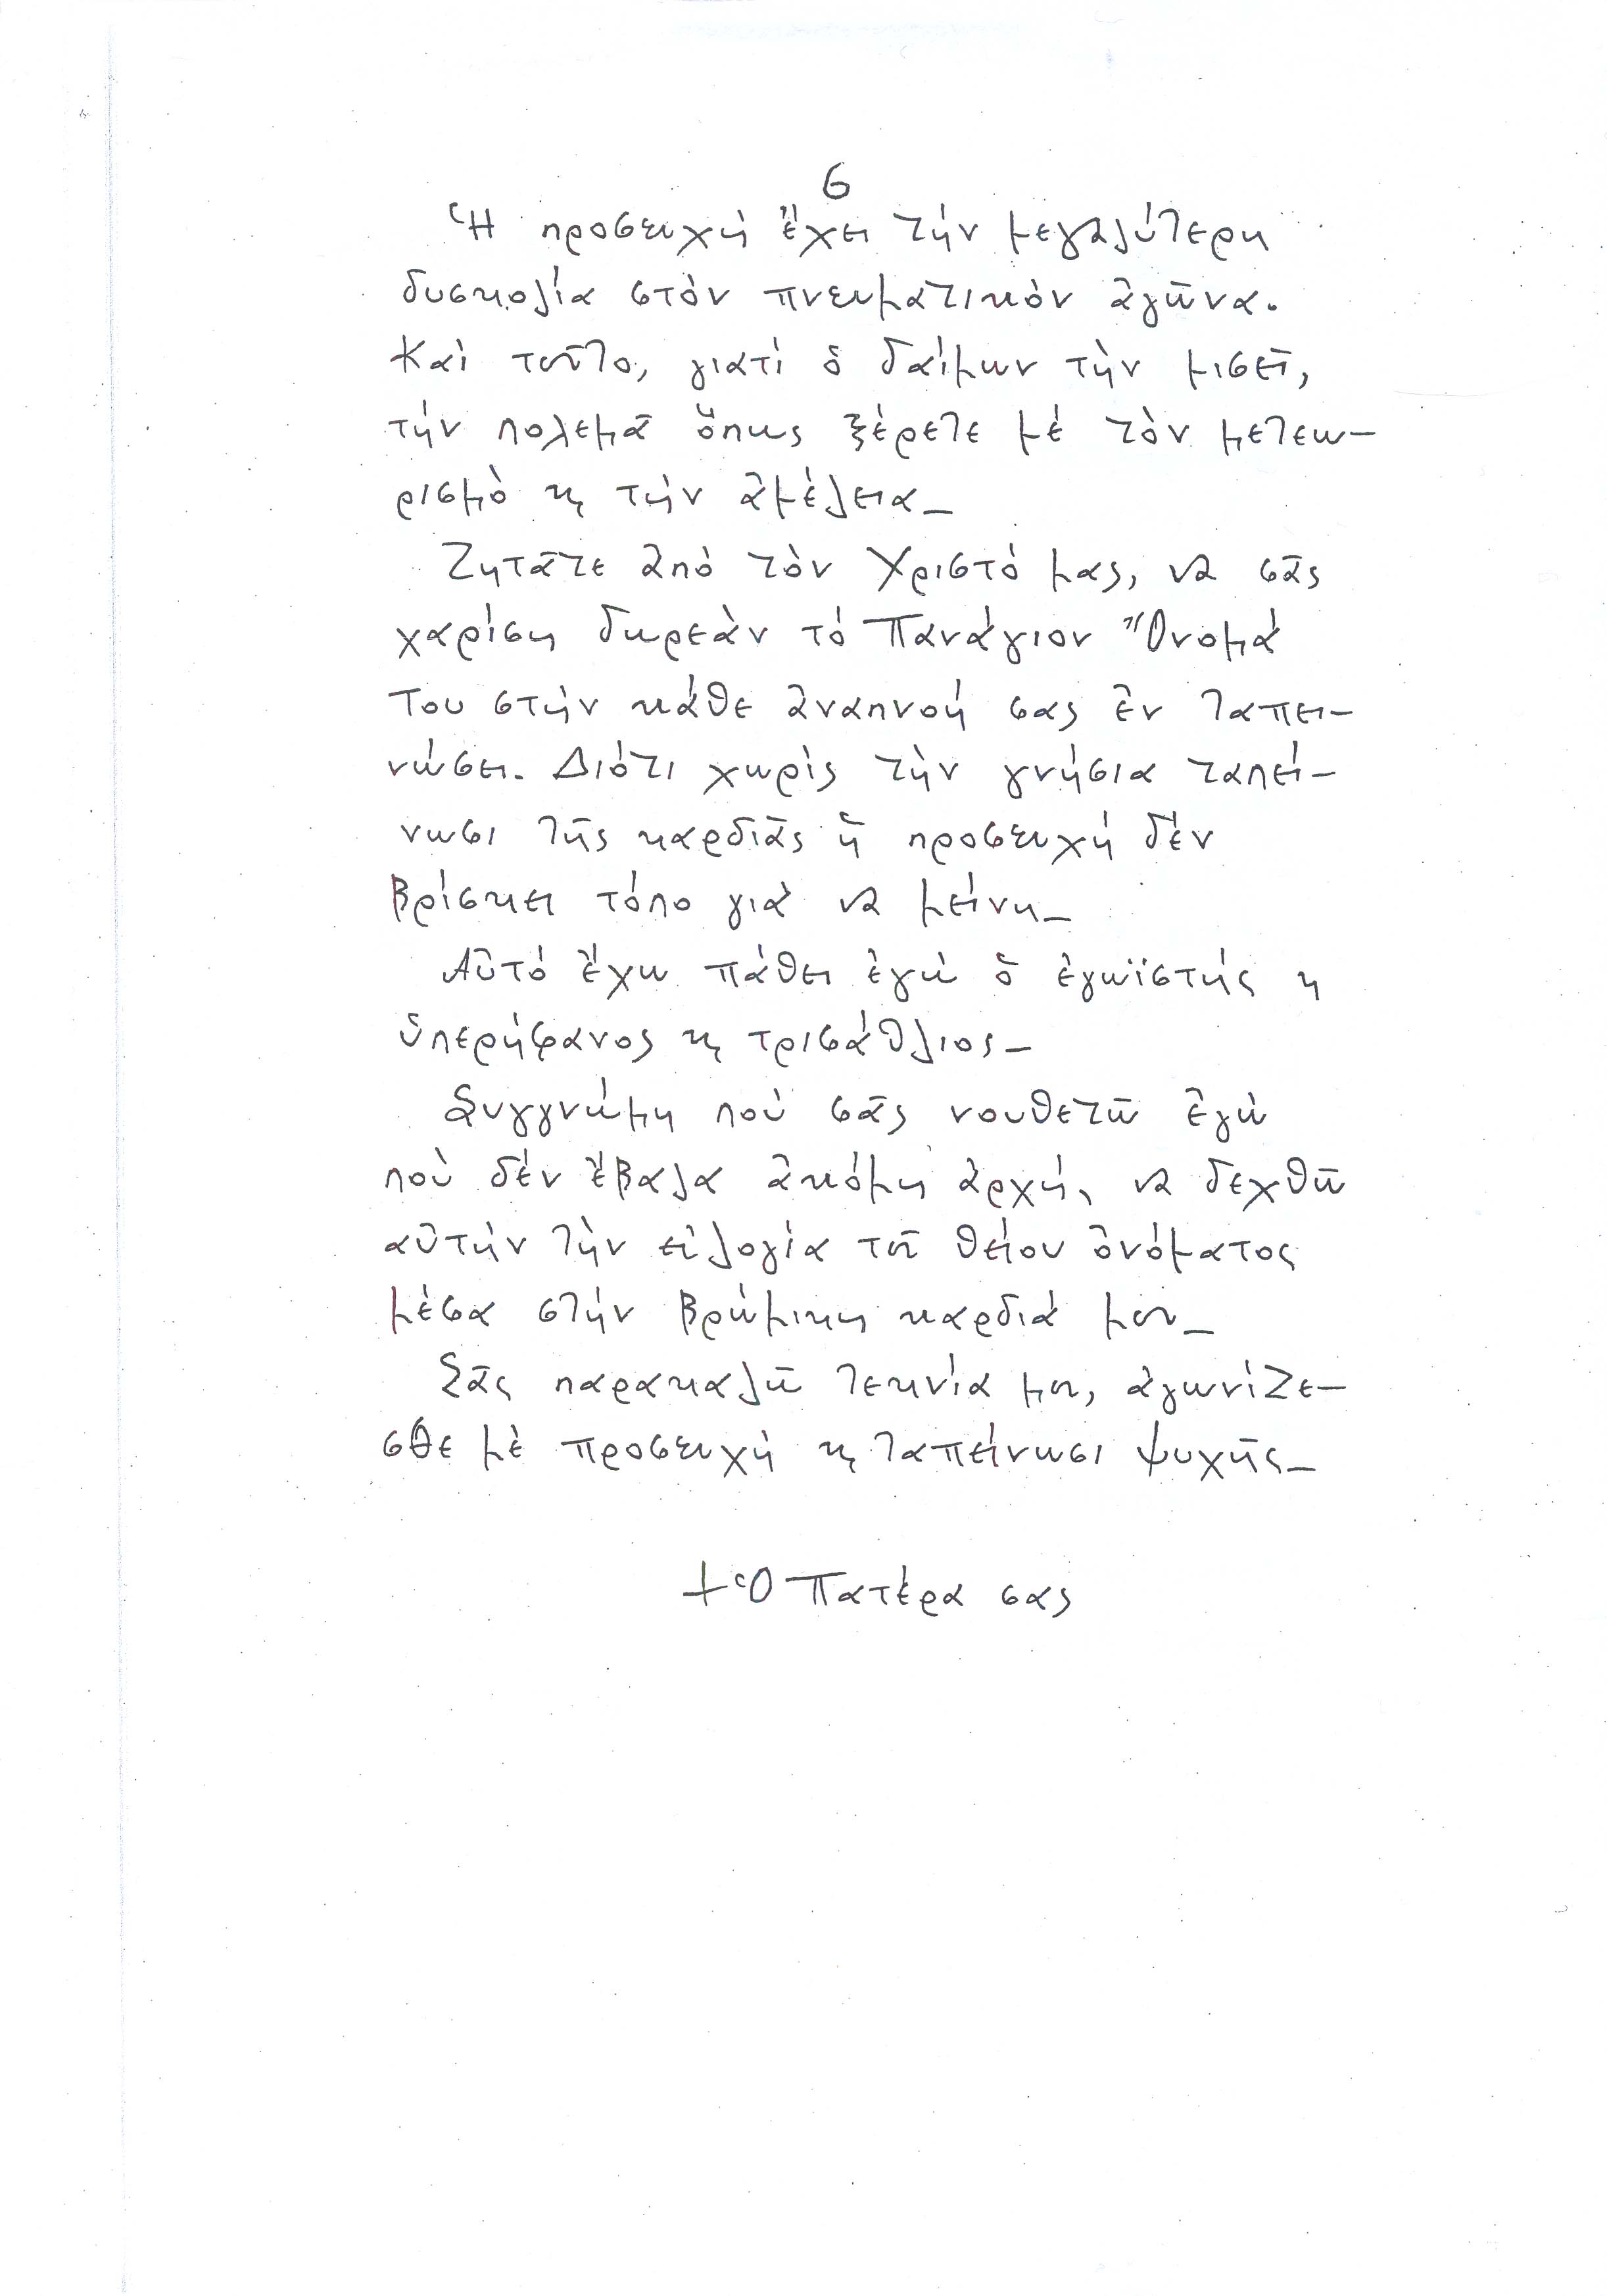 6
Ἡ προσευχή ἔχει τήν μεγαλύτερη
δυσκολία στόν πνευματικόν ἀγῶνα.
Καί τοῦτο, γιατί ὁ δαίμων τήν μισεῖ,
τήν πολεμᾶ ὅπως ξέρετε μέ τόν μετεω-
ρισμό ϗ τήν ἀμέλεια_
Ζητᾶτε ἀπό τόν Χριστό μας, νά σᾶς
χαρίση δωρεάν τό Πανάγιον Ὄνομά
Του στήν κάθε ἀναπνοή σας ἐν ταπει-
νώσει. Διότι χωρίς τήν γνήσια ταπεί-
νωσι τῆς καρδιᾶς ἡ προσευχή δέν
βρίσκει τόπο γιά νά μείνη_
Αὐτό ἔχω πάθει ἐγώ ὁ ἐγωϊστής ϗ
ὑπερήφανος ϗ τρισάθλιος_
Συγγνώμη πού σᾶς νουθετῶ ἐγώ
πού δέν ἔβαλα ἀκόμη ἀρχή, νά δεχθῶ
αὐτήν τήν εὐλογία τοῦ θείου ὀνόματος
μέσα στήν βρώμικη καρδιά μου_
Σᾶς παρακαλῶ τεκνία μου, ἀγωνίζε-
σθε μέ προσευχή ϗ ταπείνωσι ψυχῆς_
+ Ὁ Πατέρα σας